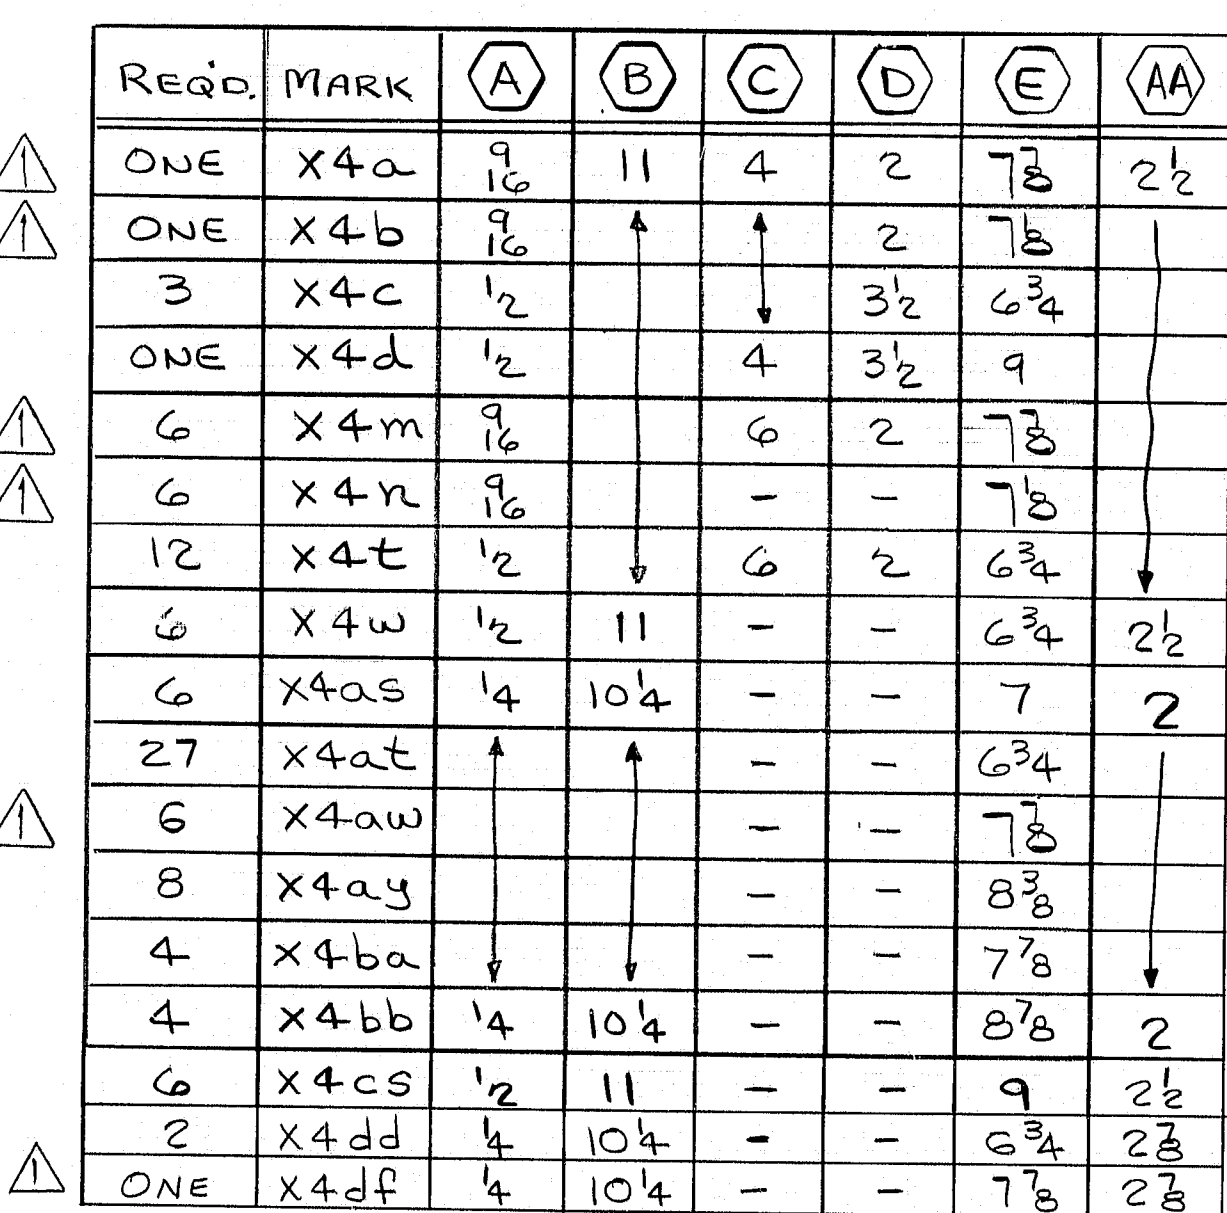 REQ'D. MARK A B C D E AA
1 ONE X4a 9/16 11 4 2 7 7/8 2 1/2
1 ONE X4b 9/16 2 7 1/8
3 X4c 1/2 3 1/2 6 3/4
ONE X4d 1/2 4 3 1/2 9
1 6 X4m 9/16 6 2 7 7/8
1 6 X4n 9/16 - - 7 1/8
12 X4t 1/2 6 2 6 3/4
6 X4w 1/2 11 - - 6 3/4 2 1/2
6 X4as 1/4 10 1/4 - - 7 2
27 X4at - - 6 3/4
1 6 X4aw - - 7 7/8
8 X4ay - - 8 3/8
4 X4ba - - 7 7/8
4 X4bb 1/4 10 1/4 - - 8 7/8 2
6 X4cs 1/2 11 - - 9 2 1/2
2 X4dd 1/4 10 1/4 - - 6 3/4 2 7/8
1 ONE X4df 1/4 10 1/4 - - 7 7/8 2 7/8